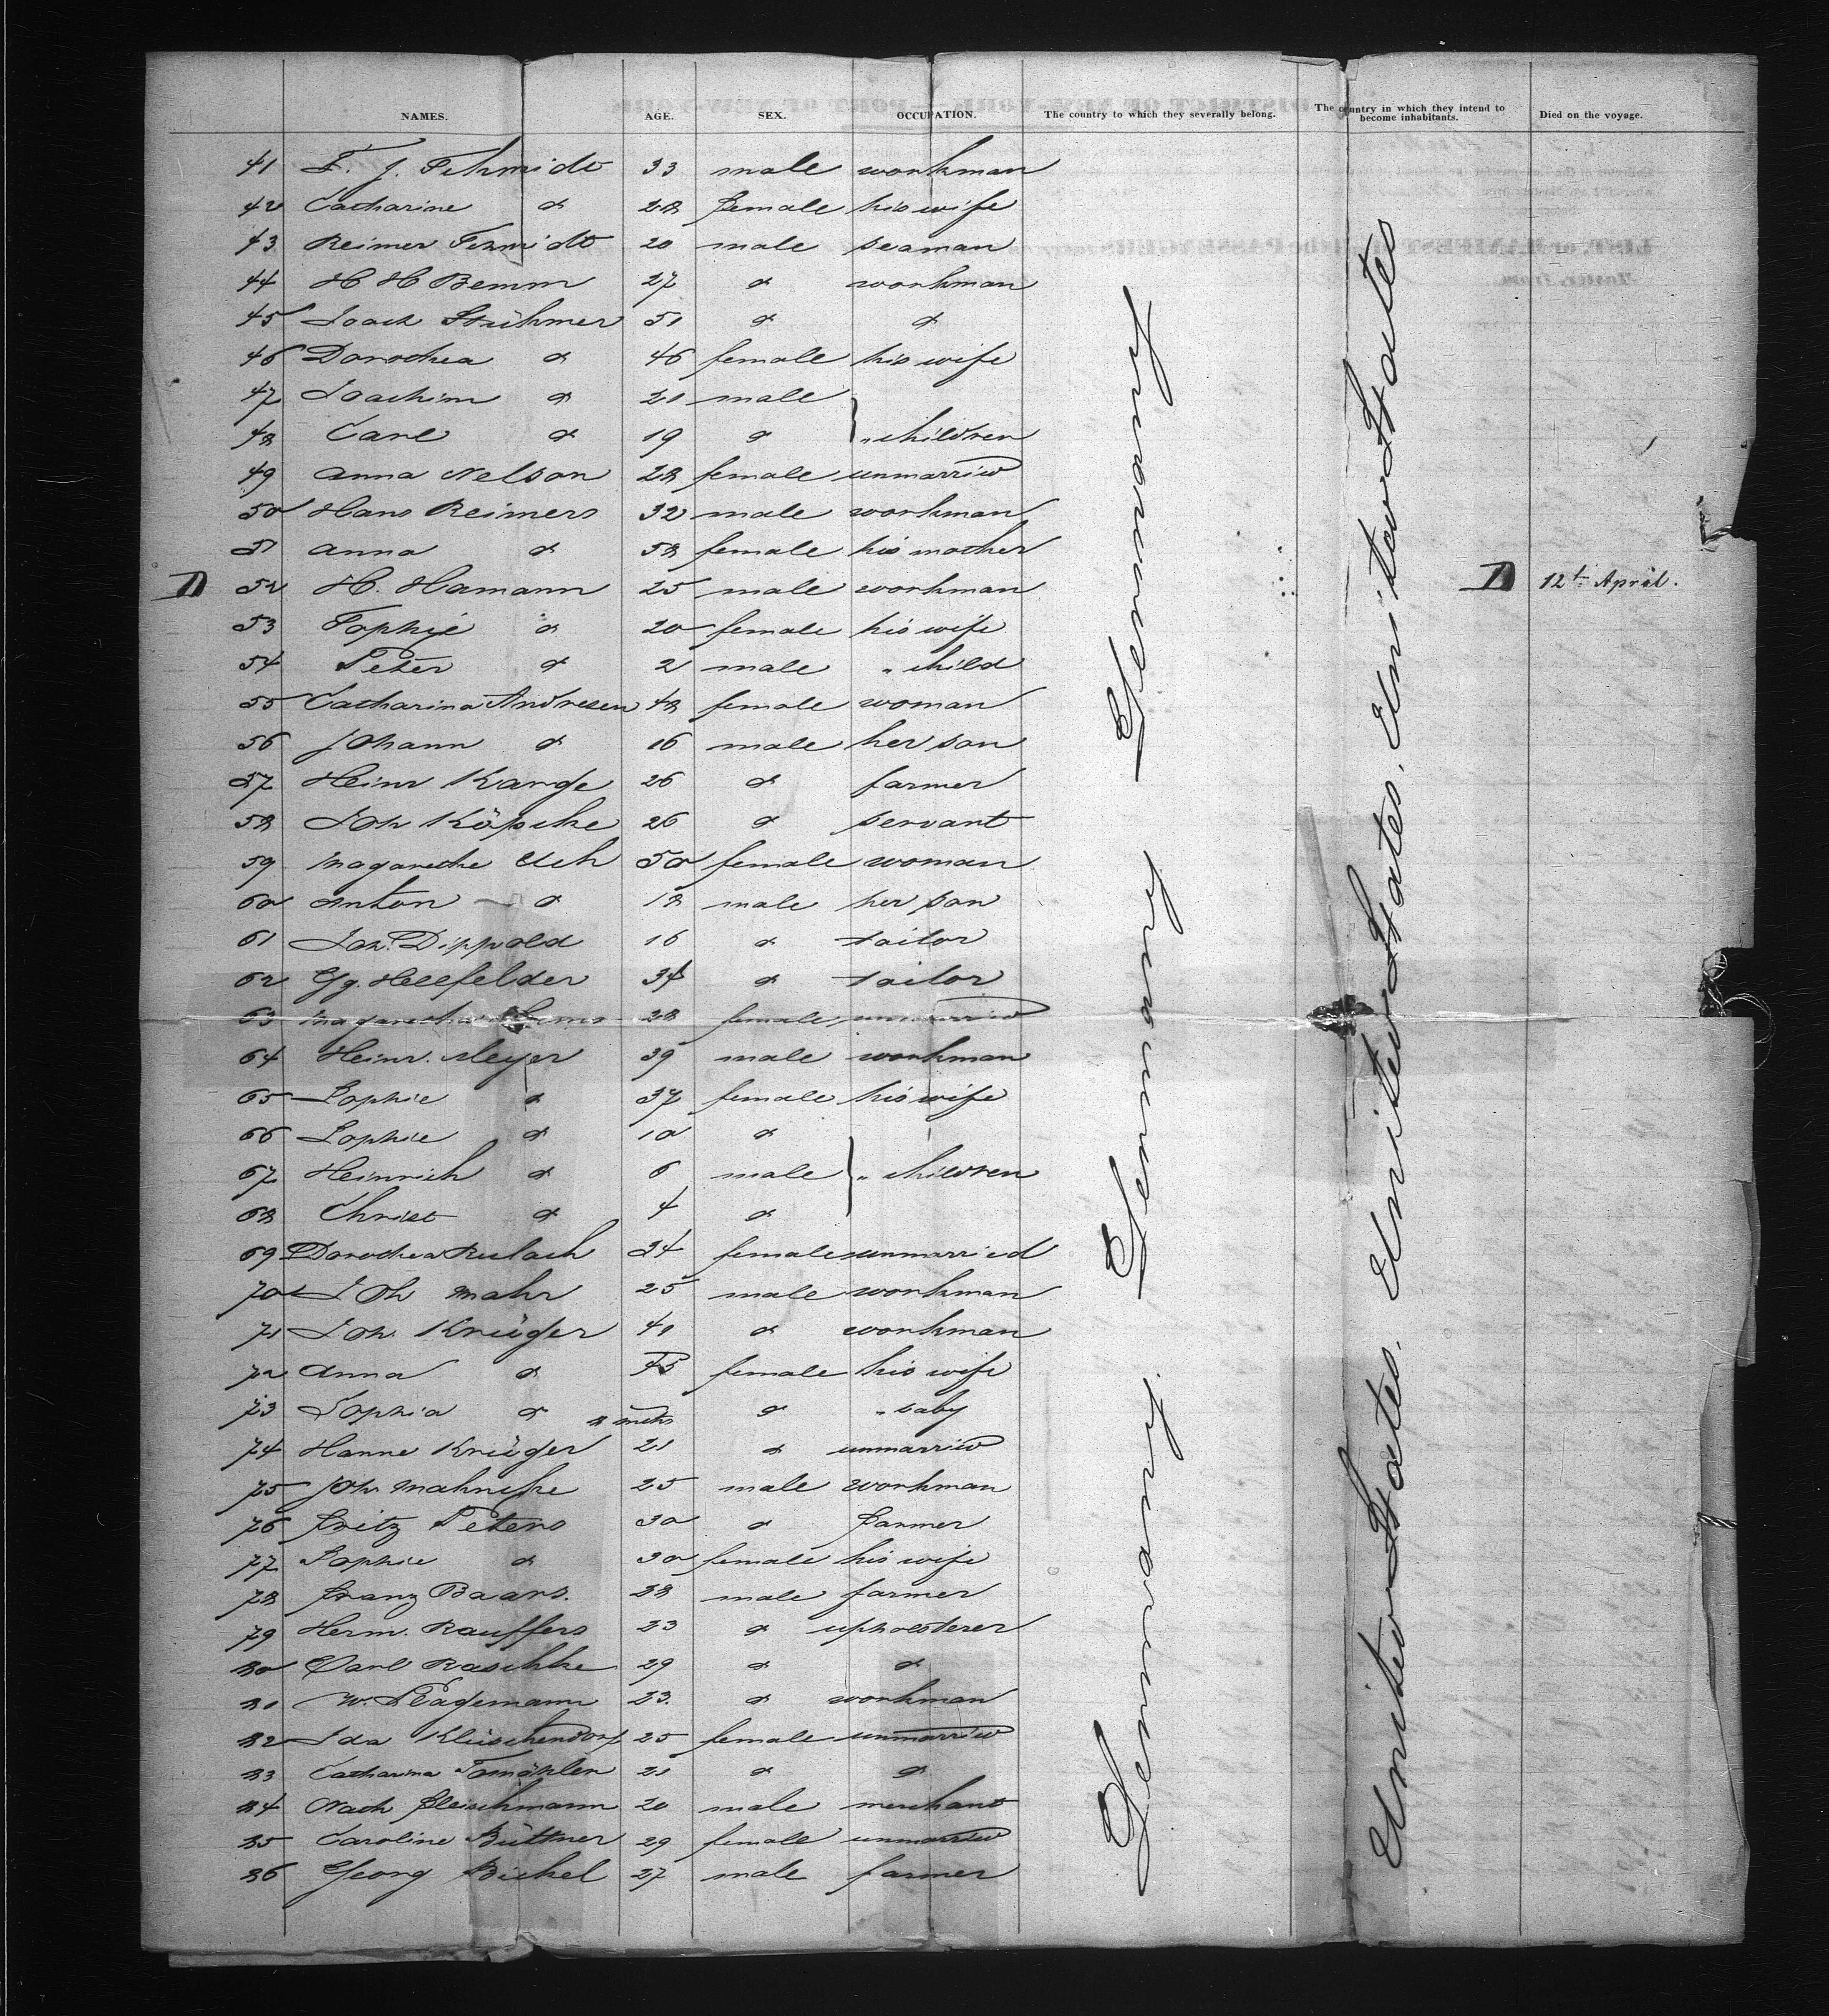 NAMES. AGE. SEX. OCCUPATION. The country to which they severally belong. The country in which they intend to become inhabitants. Died on the voyage.
41 F. J. Schmidt 33 male workman
42 Catharine do 28 female his wife
43 Reimer Scmidt 20 male seaman
44 H H Bemm 27 do workman
45 Joach Stühmer 51 do do
46 Dorothea do 46 female his wife
47 Joachim do 21 male
48 Carl do 19 do " children
49 Anna Nelson 28 female unmarried
50 Hans Reimers 32 male workman
51 Anna do 58 female his mother
D 52 H. Hamann 25 male workman D 12t April.
53 Sophie do 20 female his wife
54 Peter do 2 male " child
55 Catharina Andresen 48 female woman
56 Johann do 16 male her son
57 Heinr Karge 26 do farmer
58 Joh Köpcke 26 do servant
59 Magarethe Uch 50 female woman
60 Anton do 18 male her son
61 Joh. Dippold 16 do tailor
62 Gg. Hellfelder 34 do tailor
63 Magaretha 28 female unmarried
64 Heinr. Meyer 39 male workman
65 Sophie do 37 female his wife
66 Sophie do 10 do
67 Heinrich do 6 male " children
68 Christ do 4 do
69 Dorothea Rulach 34 female unmarried
70 Joh Mahr 25 male workman
71 Joh. Krüger 41 do workman
72 Anna do 45 female his wife
73 Sophia do 8 mths do " baby
74 Hanne Krüger 21 do unmarried
75 Joh. Mahncke 25 male workman
76 Fritz Peters 30 do farmer
77 Sophie do 30 female his wife
78 Franz Baars. 38 male farmer
79 Herm. Rauffers 23 do upholsterer
80 Carl Raschke 29 do do
81 W. Stagemann 23. do workman
82 Ida Kleischendorf 25 female unmarried
83 Catharina 21 do do
84 Nath Fleischmann 20 male merchant
85 Caroline Büttner 29 female unmarried
86 Georg Bickel 27 male farmer
Germany. Germany Germany Germany
United States. United States. United States, United States